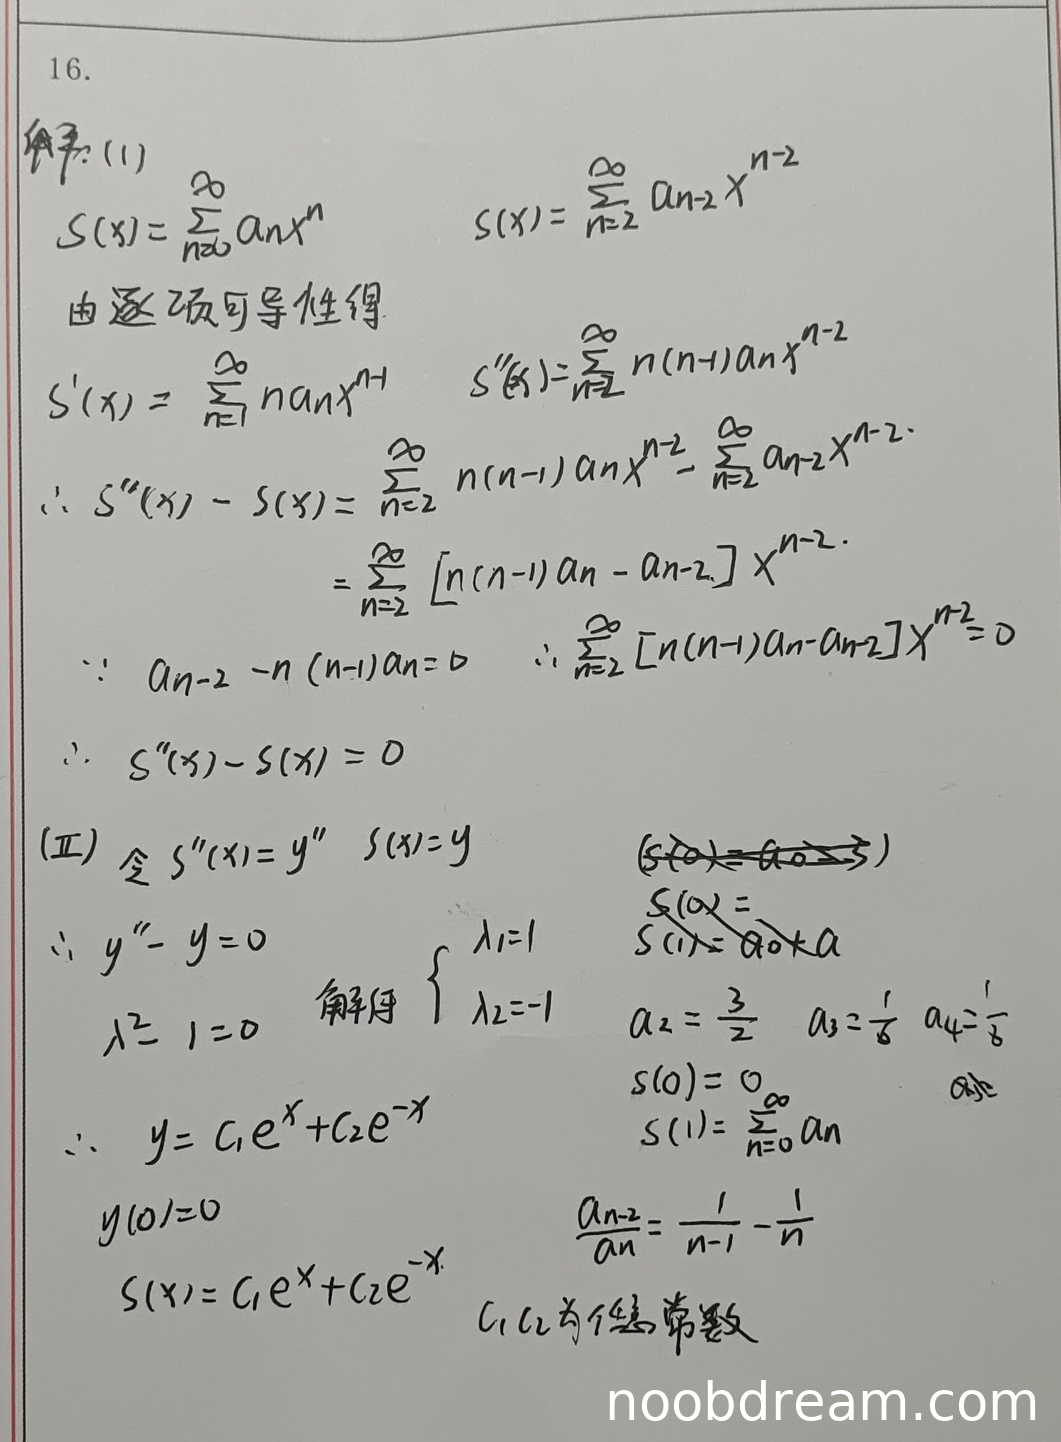 16.
解:(1)
S(x)=∑_{n=0}^{∞} a_n x^n    S(x)=∑_{n=2}^{∞} a_{n-2} x^{n-2}
由逐项可导性得
S'(x)=∑_{n=1}^{∞} n a_n x^{n-1}    S''(x)=∑_{n=2}^{∞} n(n-1)a_n x^{n-2}
∴ S''(x) - S(x) = ∑_{n=2}^{∞} n(n-1)a_n x^{n-2} - ∑_{n=2}^{∞} a_{n-2} x^{n-2}.
= ∑_{n=2}^{∞} [n(n-1)a_n - a_{n-2}] x^{n-2}.
∵ a_{n-2} - n(n-1)a_n = 0    ∴ ∑_{n=2}^{∞} [n(n-1)a_n - a_{n-2}] x^{n-2} = 0
∴ S''(x) - S(x) = 0
(Ⅱ) 令 S''(x)=y''  S(x)=y
∴ y'' - y = 0
λ² - 1 = 0    解得 { λ₁=1  λ₂=-1
∴ y = C₁e^x + C₂e^{-x}
y(0)=0
S(x) = C₁e^x + C₂e^{-x}
(S(0)=a₀=3)
S(0)=
S(1)=a₀+a
a₂=3/2  a₃=1/6  a₄=1/6
S(0)=0
S(1)=∑_{n=0}^{∞} a_n
a_{n-2}/a_n = 1/(n-1) - 1/n
C₁ C₂为任意常数
noobdream.com